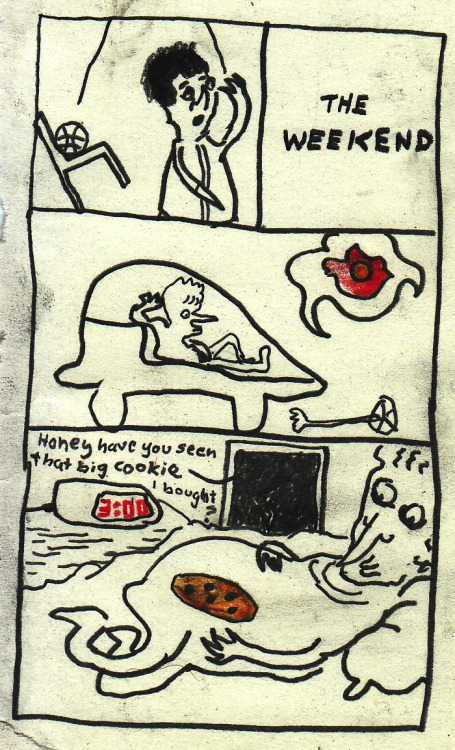 THE
WEEKEND
Honey have you seen
that big cookie
I bought
?
3:00